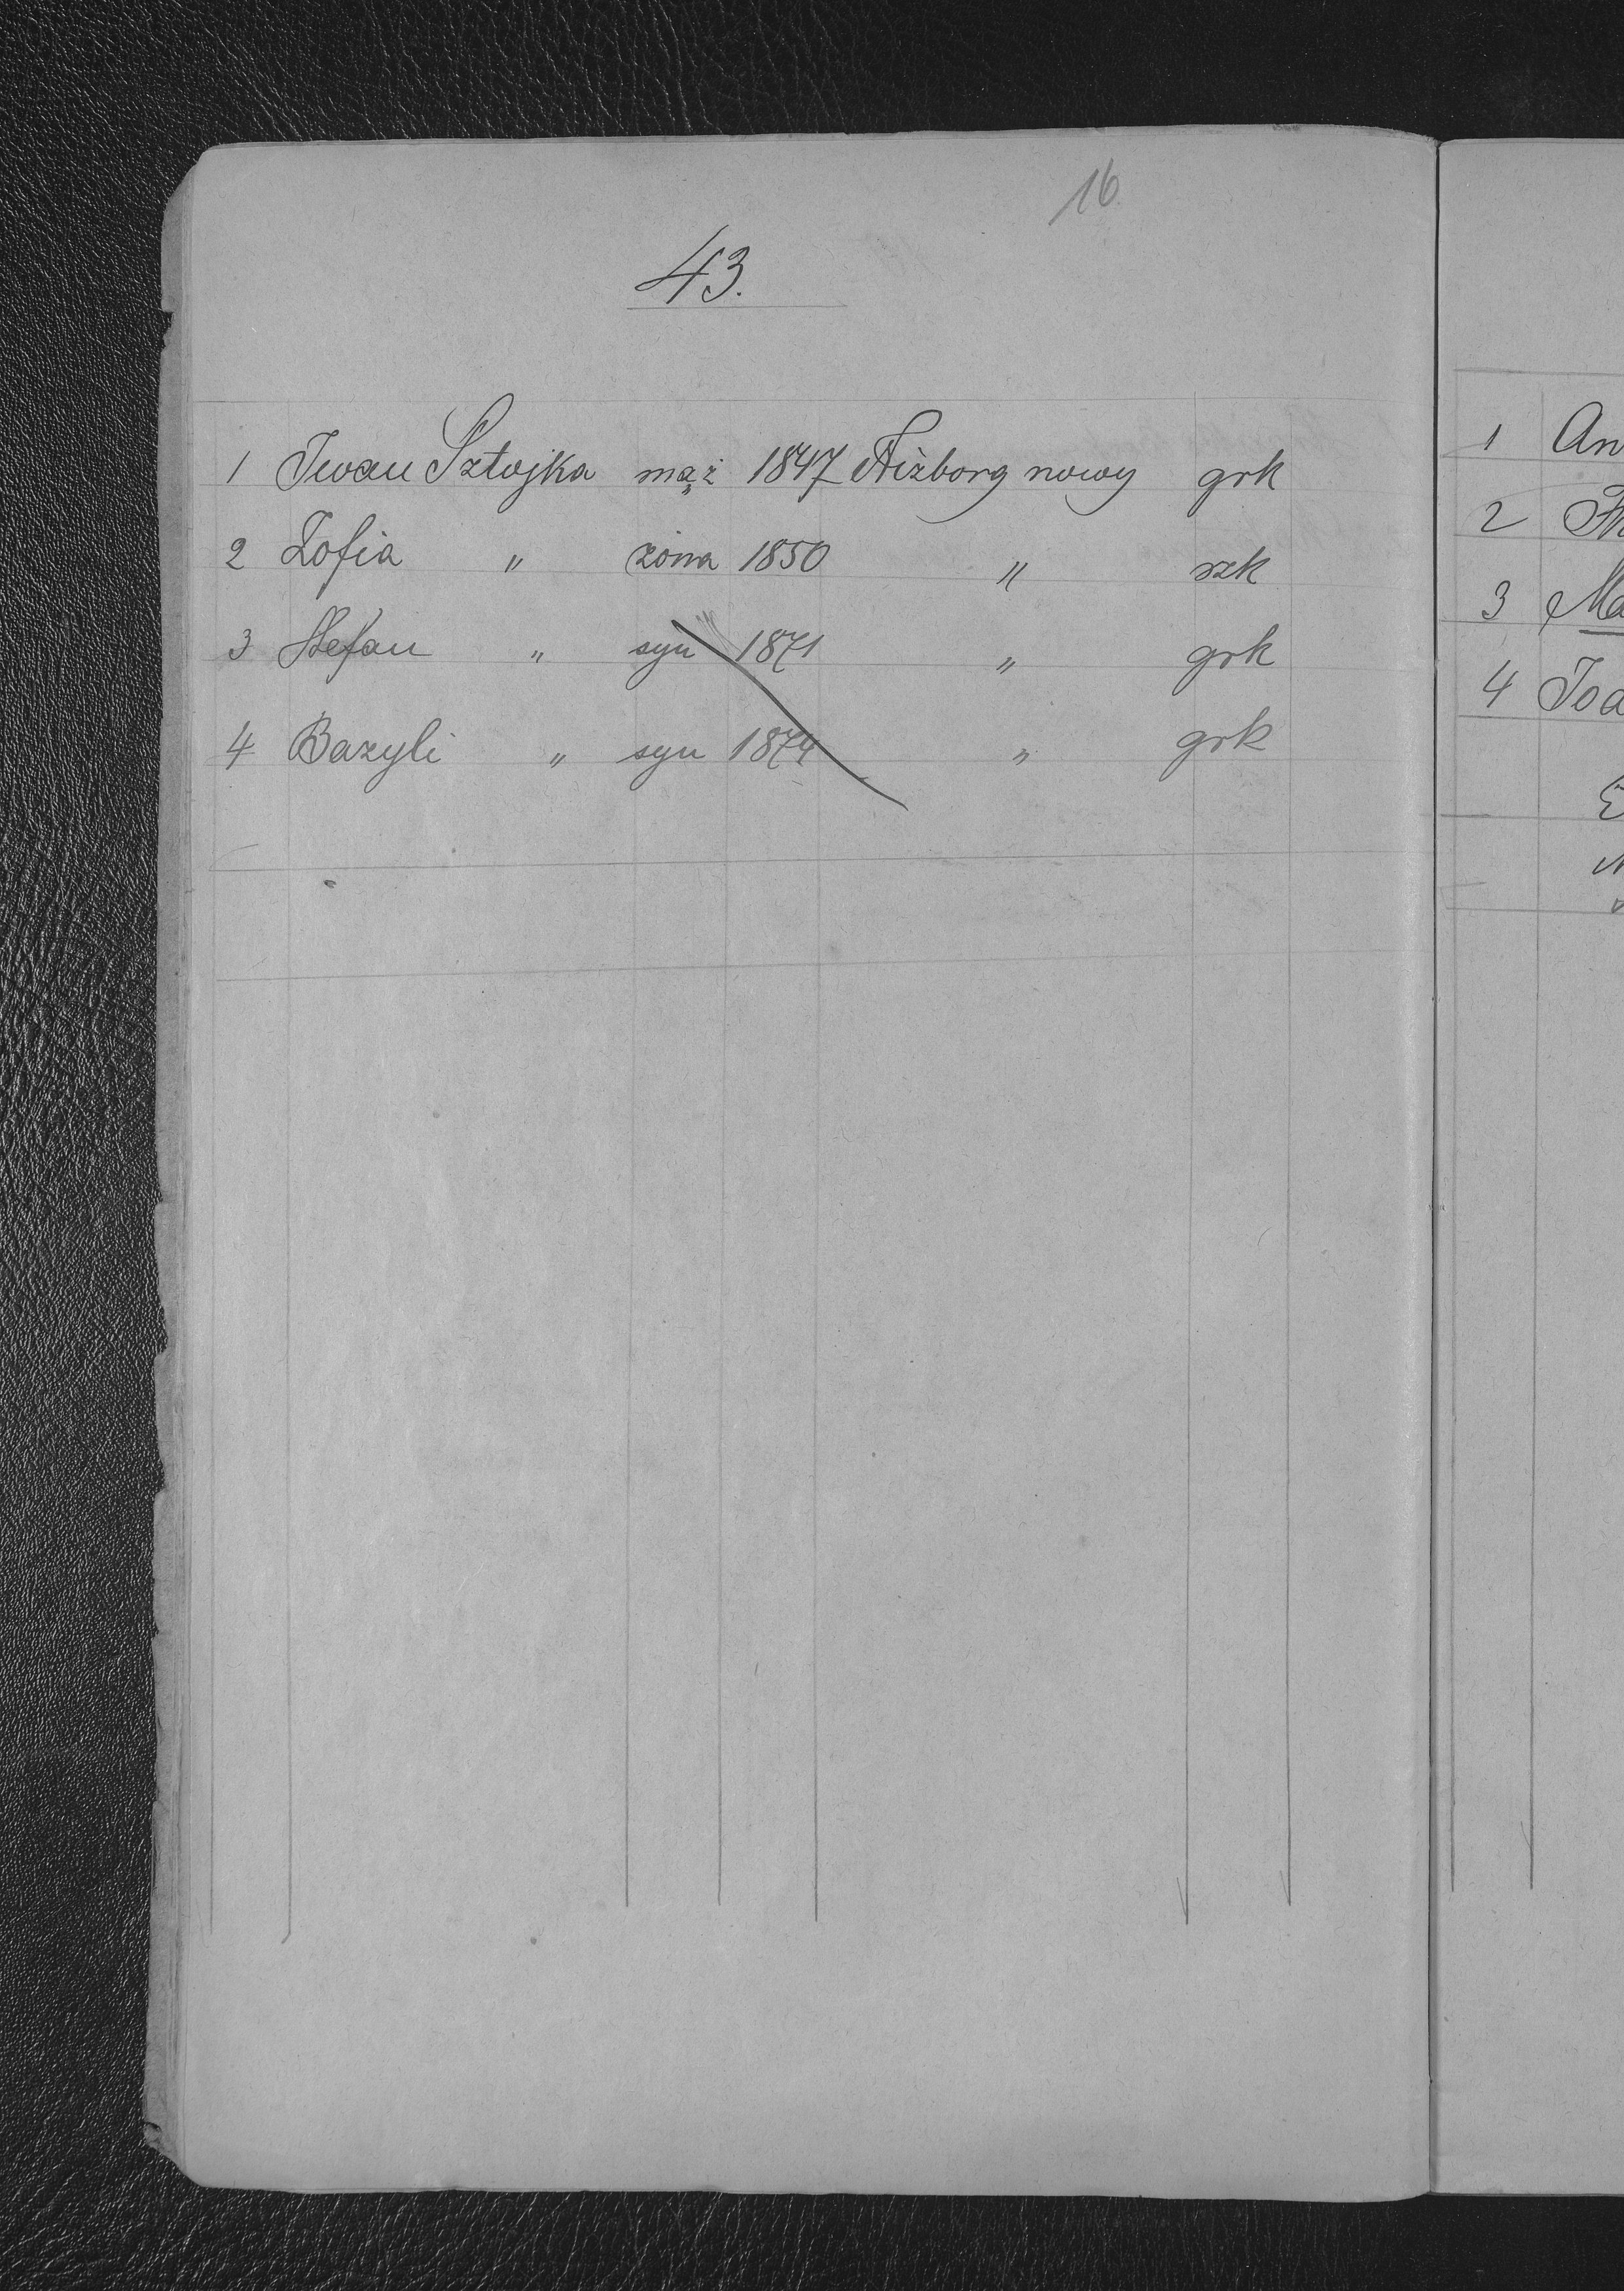 16
43.
1 Iwan Sztojka mąż 1847 Niżborg nowy grk
2 Zofia " żona 1850 " rzk
3 Stefan " syn 1871 " grk
4 Bazyli " syn 1874 " grk
1 An
2
3 Ma
4 Joa